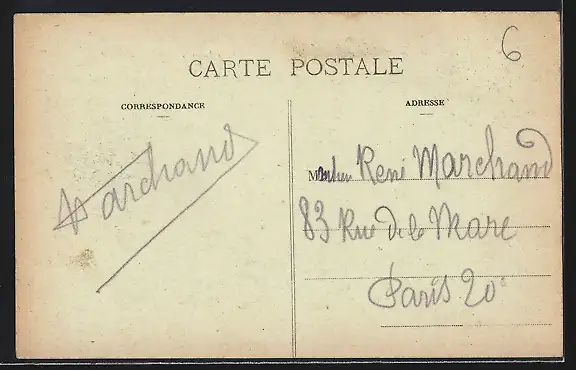 6
CARTE POSTALE
CORRESPONDANCE
ADRESSE
Marchand
Monsieur René Marchand
83 Rue de la Mare
Paris 20e